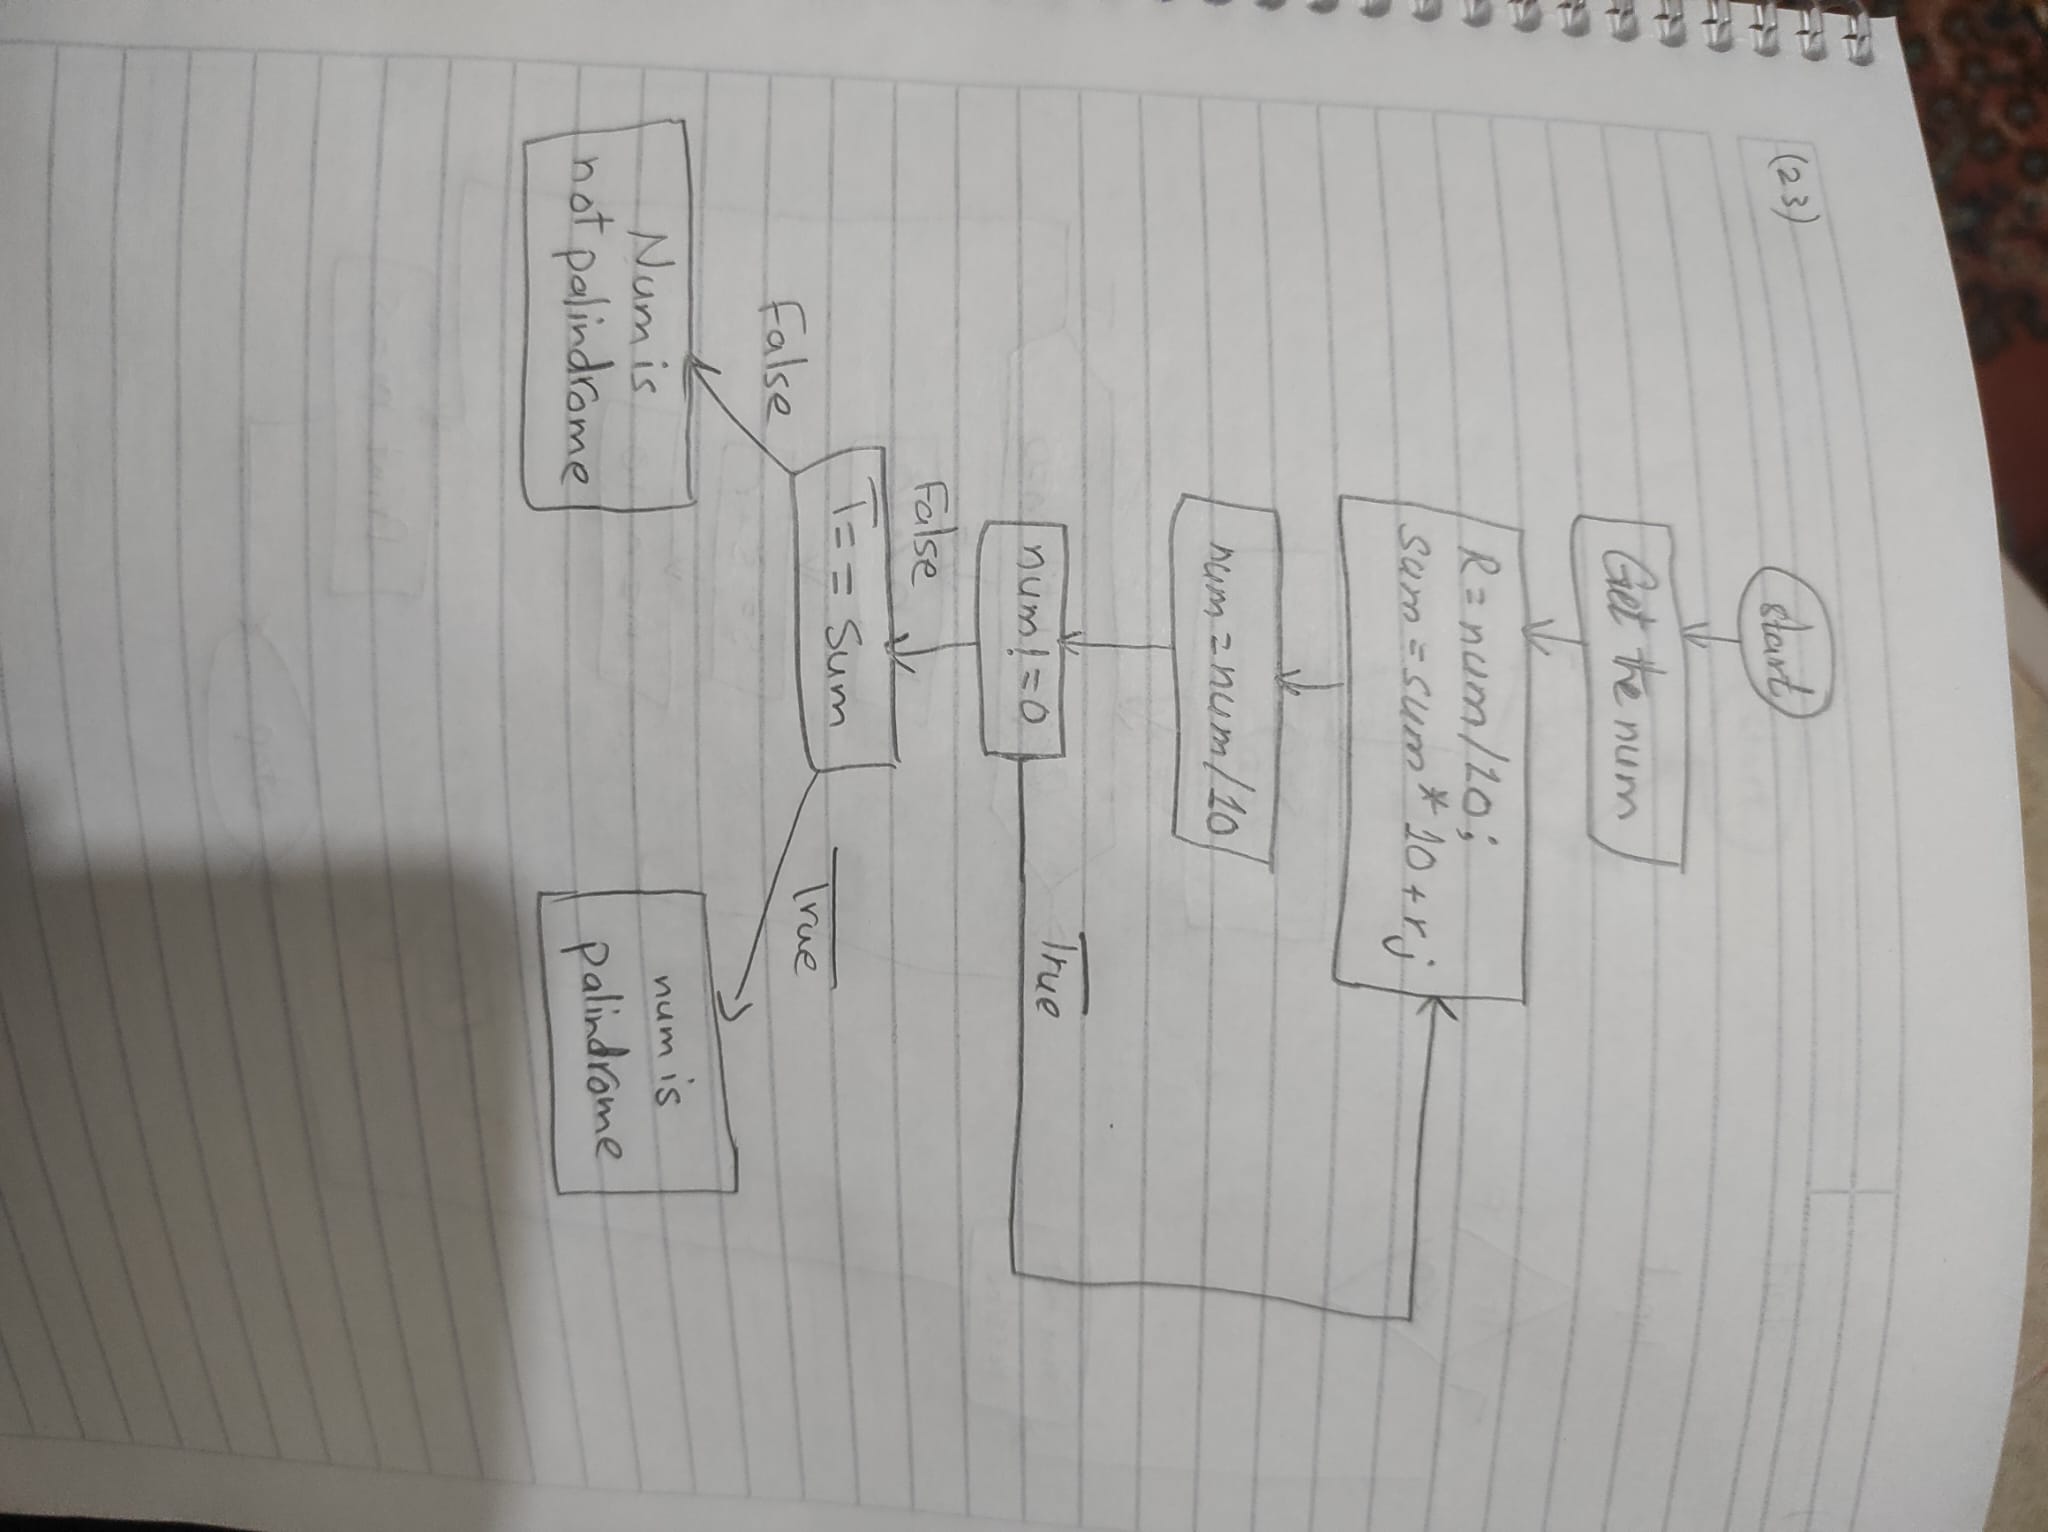 (23)
start
Get the num
R=num/10;
sum=sum*10+r;
num=num/10
num!=0
True
False
T==Sum
False
True
Num is
not palindrome
num is
palindrome